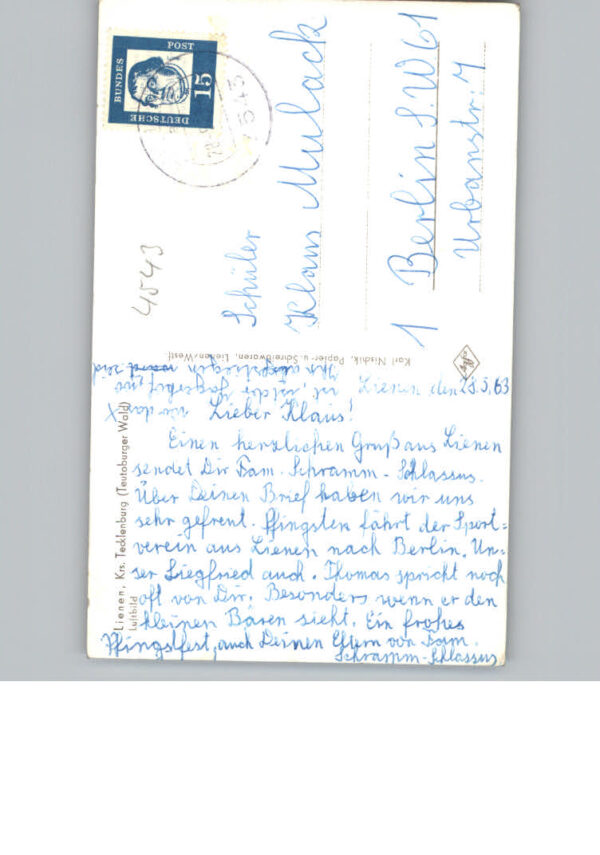 DEUTSCHE
BUNDES
POST
15
4543
Schüler
Klaus Mulack
1 Berlin S.W 61
Urbanstr. 7
Karl Nischik, Papier- u. Schreibwaren, Lienen/Westf.
Lienen, Krs. Tecklenburg (Teutoburger Wald)
Luftbild
Lienen den 29.5.63
Lieber Klaus!
Einen herzlichen Gruß aus Lienen
sendet Dir Fam. Schramm - Schlassus.
Über Deinen Brief haben wir uns
sehr gefreut. Pfingsten fährt der Sport=
verein aus Lienen nach Berlin. Un-
ser Siegfried auch. Thomas spricht noch
oft von Dir. Besonders wenn er den
kleinen Bären sieht. Ein frohes
Pfingstfest, auch Deinen Eltern von Fam.
Schramm-Schlassus
wo das X
ist, ist der
Ihr ausgestiegen seid